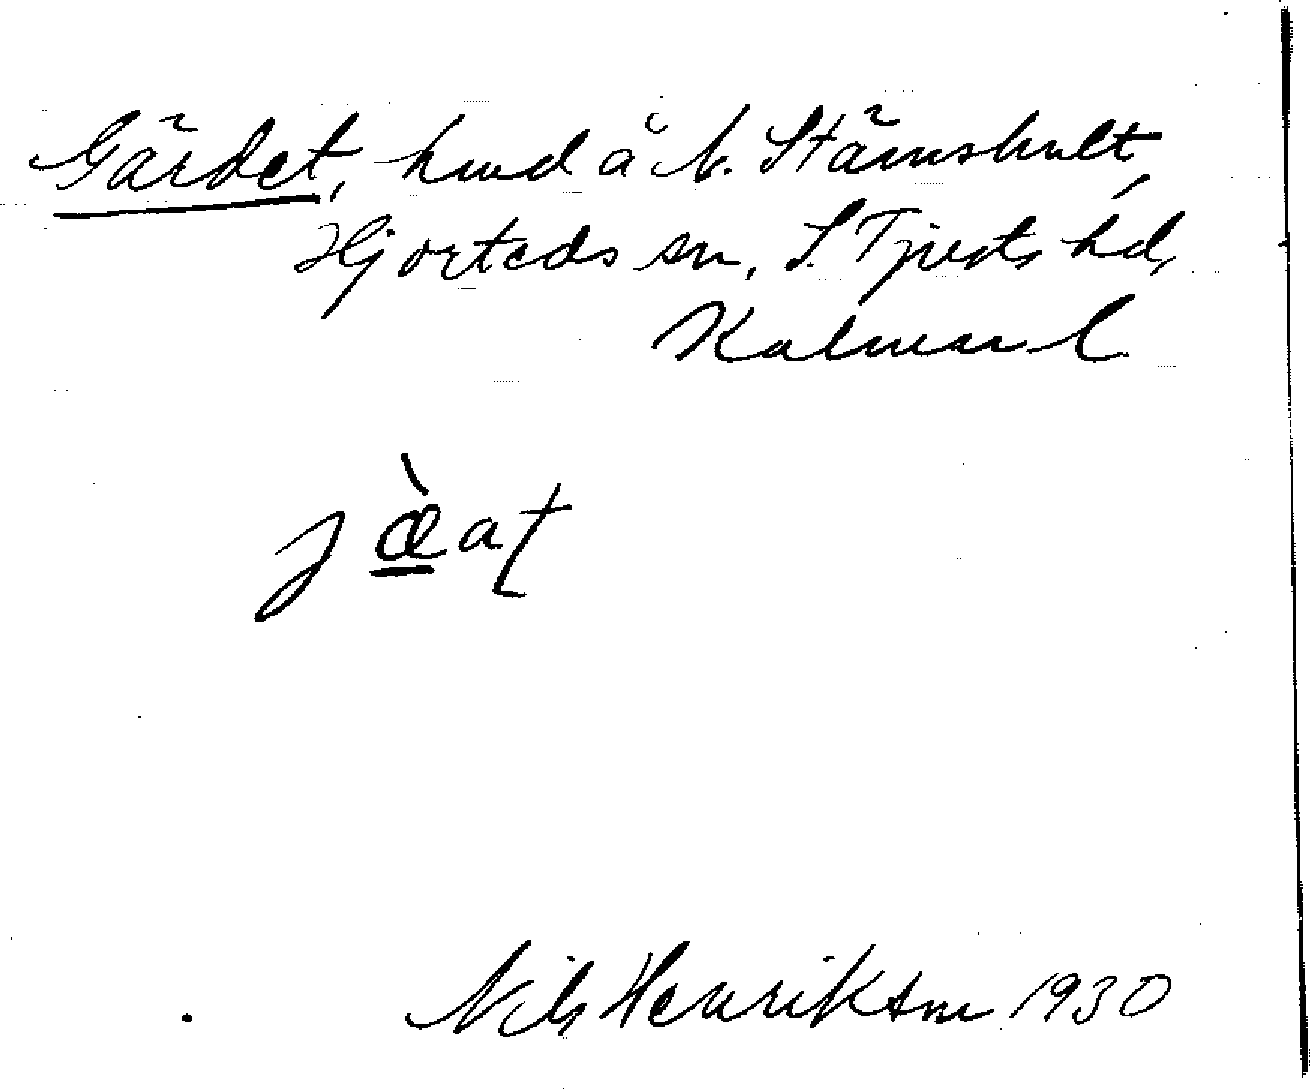 Gärdet, hmd å N. Stämshult,
Hjorteds sn, S. Tjusts hd,
Kalmar l.
jæ̀at
Nils Henrikson 1930